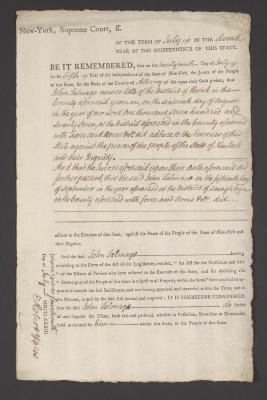 New-York, Supreme Court, ss.
OF THE TERM OF July IN THE Seventh
YEAR OF THE INDEPENDENCE OF THIS STATE.
BE IT REMEMBERED, that on the twenty ninth Day of July in
the fifth Year of the Independence of the State of New-York, the Jurors of the People
of this State, for the Body of the County of Albany
John Talmage now or late of the District of in the
County aforesaid yeoman, on the sixteenth day of August
in the year of our Lord one thousand seven hundred and
seventy seven, at the District aforesaid in the County aforesaid
with force and arms &c. did adhere to the Enemies of this
State against the peace of the people of the State of New York
and their Dignity.
And that the Jurors aforesaid upon their Oath aforesaid do
further present, that the said John Talmage on the fifteenth day
of September in the year aforesaid at the District of
in the County aforesaid with force and Arms &c. did
adhere to the Enemies of this State, against the Peace of the People of the State of New-York and
their Dignity.
And the said John Talmage having
according to the Form of the Act of the Legislature, entitled, "An Act for the Forfeiture and Sale
"of the Estates of Persons who have adhered to the Enemies of this State, and for declaring the
"Sovereignty of the People of this State in respect to all Property within the same," been notified to appear
and traverse the said Indictment, and not having appeared and traversed within the Time, and in
the Manner, in and by the said Act limited and required; IT IS THEREFORE CONSIDERED,
that the said John Talmage Do forfeit
all and singular the Estate, both real and personal, whether in Possession, Reversion or Remainder,
held or claimed by him within this State, to the People of this State.
Judgment signed this
Day of July MDCCLXXXIII.
Robert Yates